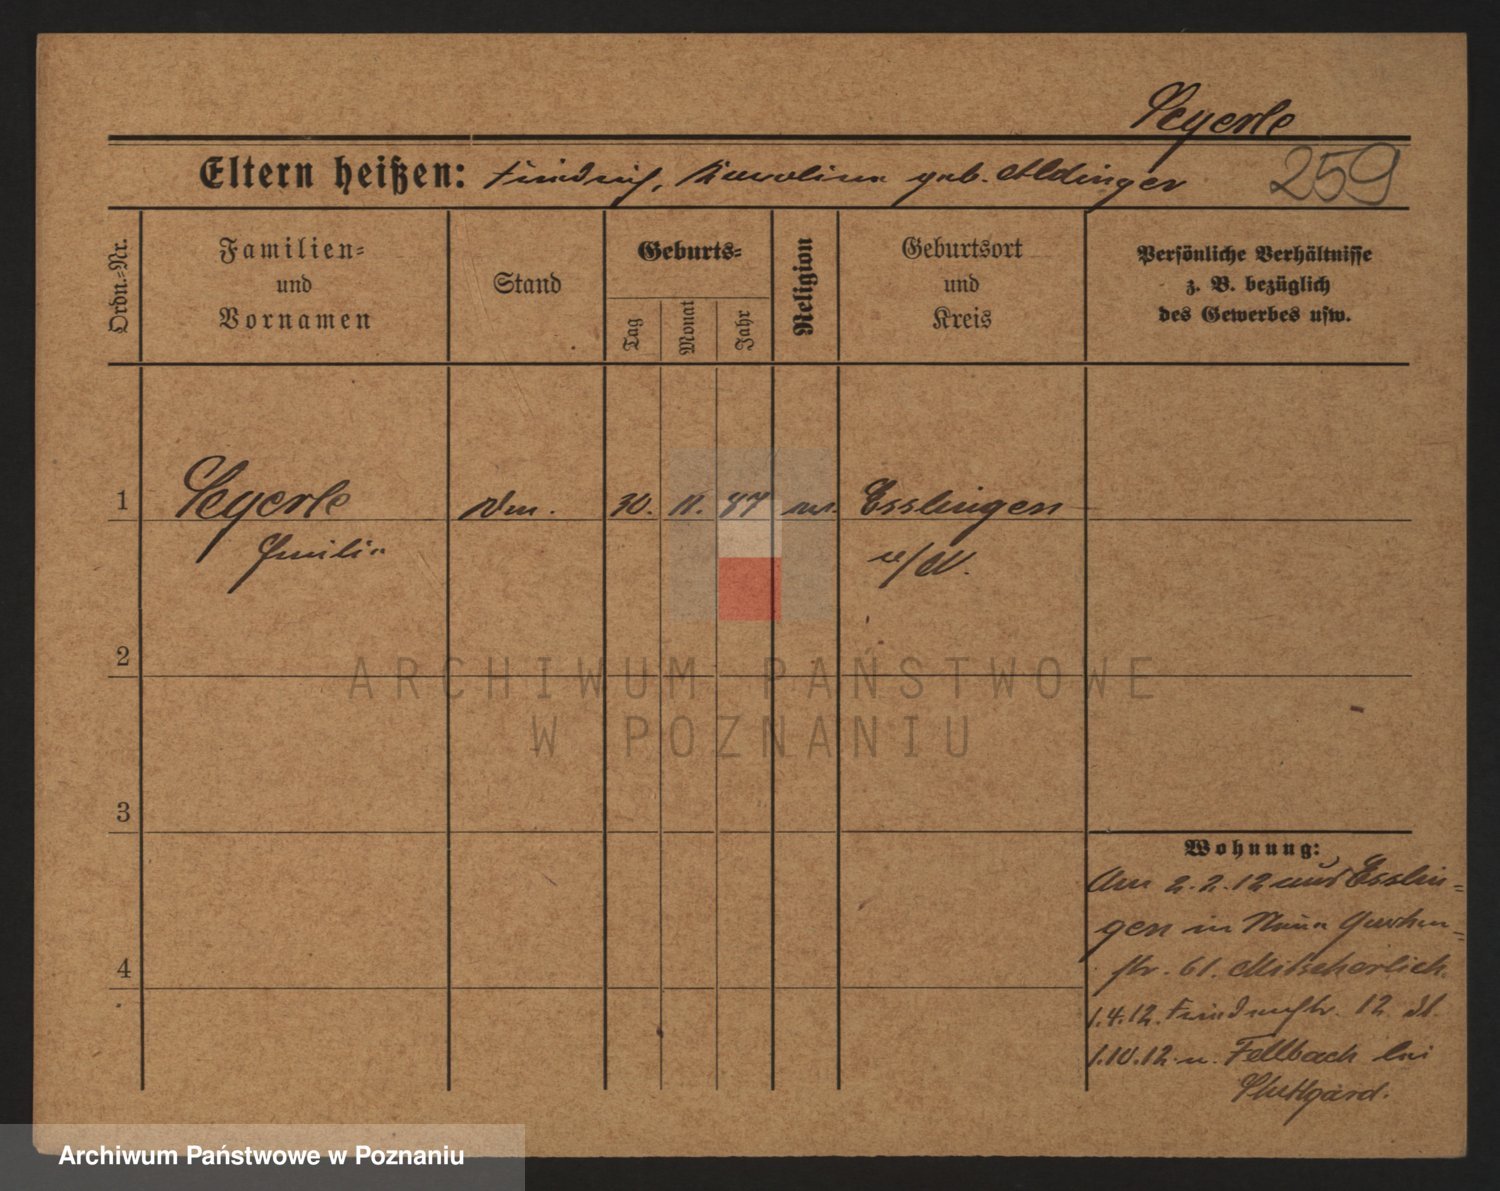 Seyerle
Eltern heißen: Friedrich, Karoline geb. Aldinger
259
Ordn.-Nr.
Familien-
und
Vornamen
Stand
Geburts-
Tag
Monat
Jahr
Religion
Geburtsort
und
Kreis
Persönliche Verhältnisse
z. B. bezüglich
des Gewerbes usw.
1
Seyerle
30. 11. 87
Esslingen
Emilie
a/N.
2
ARCHIWUM PAŃSTWOWE
W POZNANIU
3
Wohnung:
Am 2.2.12 aus Esslin-
gen in Neue
str. 61. Mitscherlich.
1.4.12. Friedrichstr. 12
1.10.12. n. Fellbach bei
Stuttgard.
4
Archiwum Państwowe w Poznaniu